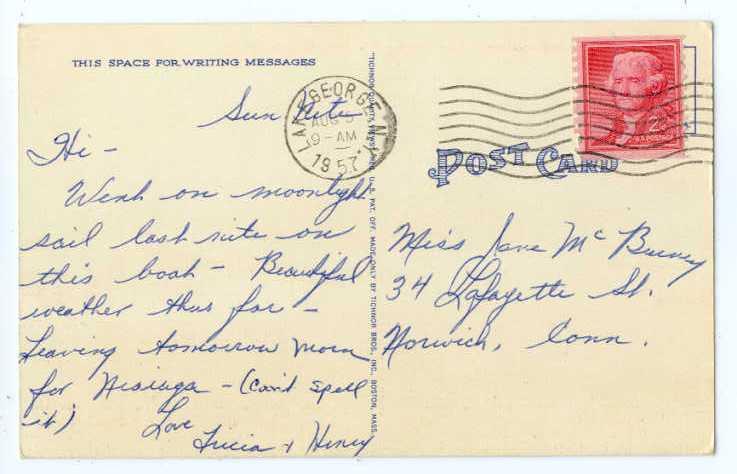 THIS SPACE FOR WRITING MESSAGES
Sun Nite
Hi -
Went on moonlight
sail last nite on
this boat - Beautiful
weather thus far -
Leaving tomorrow morn
for Niaiuga - (can't spell
it)
Love
Tricia + Henry
LAKE GEORGE N.Y.
AUG 5
9 - AM
1957
POST CARD
2¢
Miss Jane Mc
34 Lafayette St.
Norwich, Conn.
U.S. PAT. OFF. MADE ONLY BY TICHNOR BROS., INC., BOSTON, MASS.